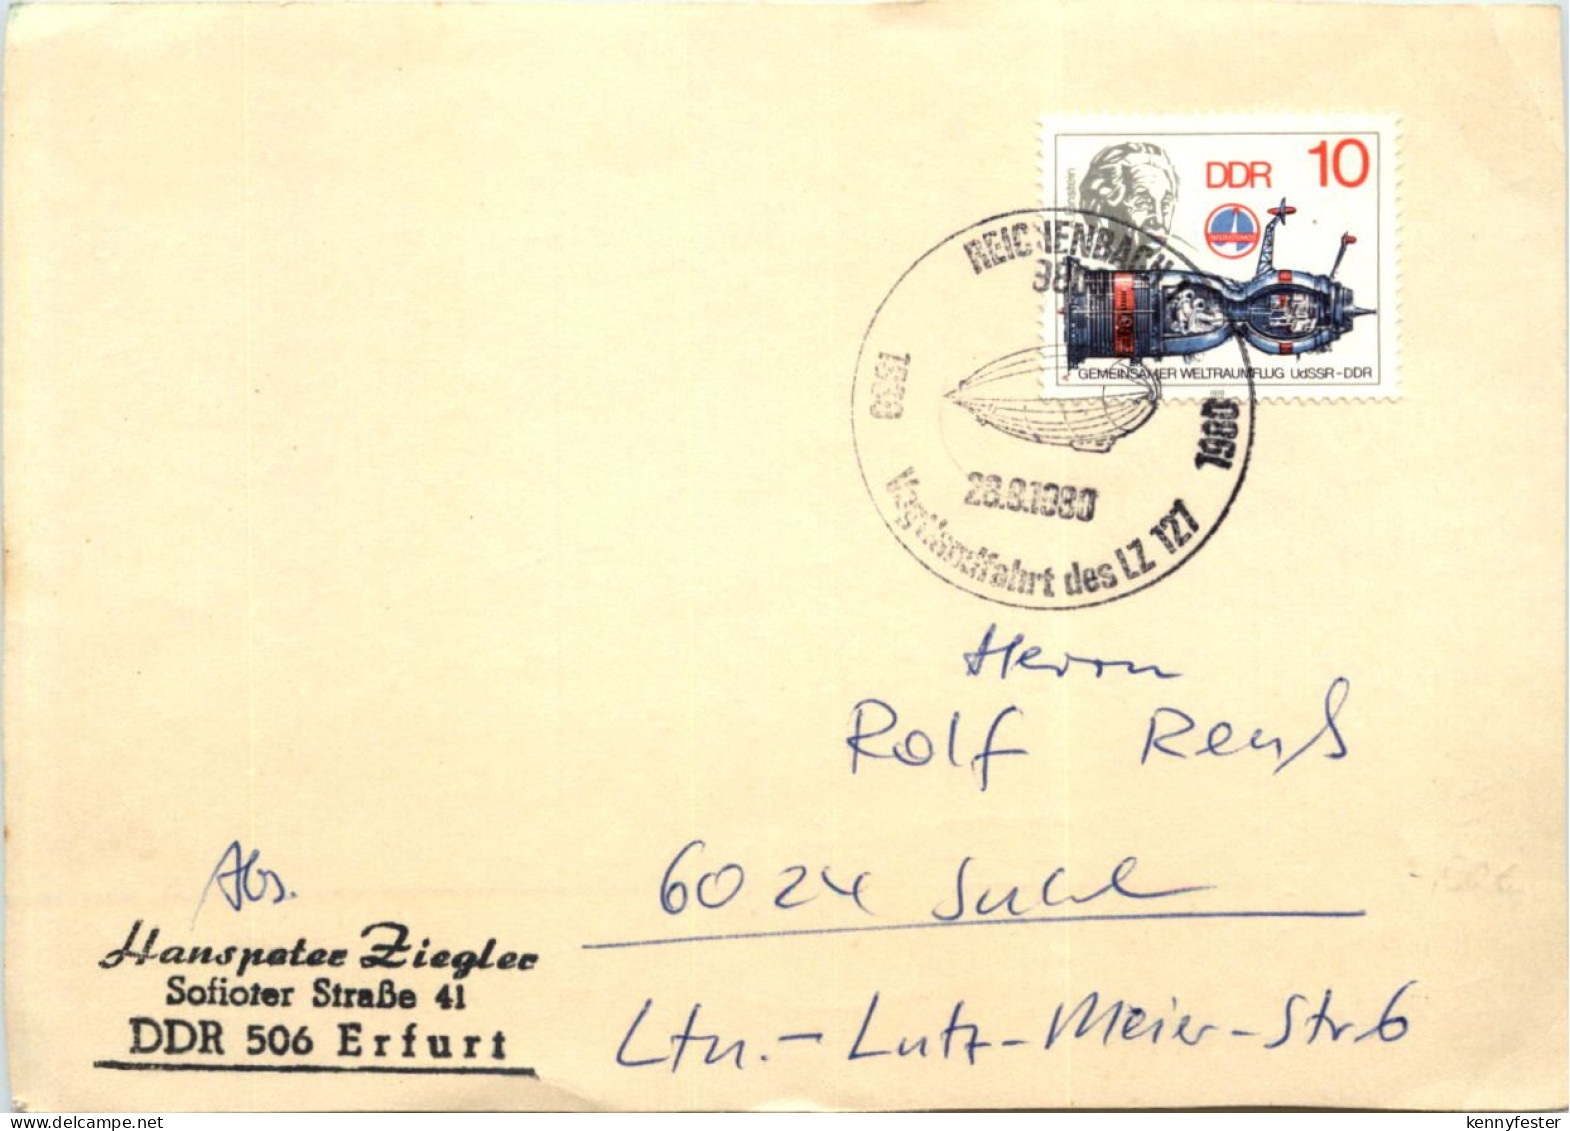 DDR 10
Einstein
INTERKOSMOS
GEMEINSAMER WELTRAUMFLUG UdSSR-DDR
REICHENBACH
980
1980
28.9.1980
Vogtlandfahrt des LZ 127
Herrn
Rolf Reuß
6024 Suhl
Ltn.-Lutz-Meier-Str 6
Abs.
Hanspeter Ziegler
Sofioter Straße 41
DDR 506 Erfurt
kennyfester